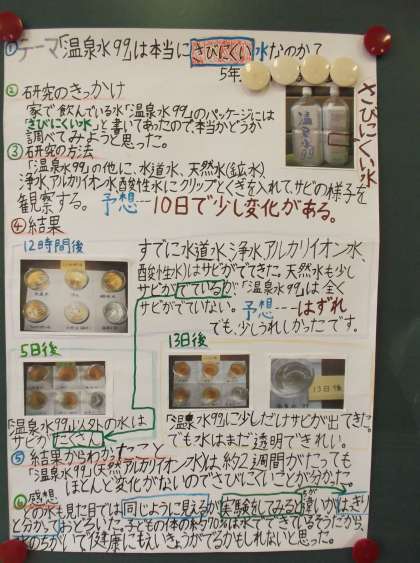 ①テーマ「温泉水99」は本当にさびにくい水なのか?
5年
②研究のきっかけ
「家で飲んでいる水「温泉水99」のパッケージには
「さびにくい水」と書いてあったので、本当かどうか
調べてみようと思った。
さびにくい水
温泉水99
③研究の方法
「温泉水99」の他に、水道水、天然水(鉱水)
浄水、アルカリイオン水、酸性水にクリップとくぎを入れて、サビの様子を
観察する。予想…10日で少し変化がある。
④結果
12時間後
すでに水道水、浄水、アルカリイオン水、
酸性水はサビがでてきた。天然水も少し
サビがでているが「温泉水99」は全く
サビがでていない。予想…はずれ
でも、少しうれしかったです。
5日後
「温泉水99」以外の水は
サビがたくさん
13日後
13日後
「温泉水99」に少しだけサビが出てきた。
でも水はまだ透明できれい。
⑤結果からわかったこと
「温泉水99」(天然アルカリイオン水)は約2週間がたっても
ほとんど変化がないのでさびにくいことが分かった。
⑥感想
の水も見た目では同じように見えるが実験をしてみると違いがはっきり
と分かっておどろいた。子どもの体の約70%は水でできているそうだから、
水のちがいで健康にもえいきょうがでるかもしれないと思った。